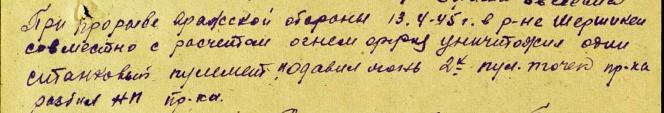 При прорыве вражской обороны 13.4.45 г. в р-не
совместно с расчетом огнем уничтожил один
станковый пулемет, подавил огонь 2х пул. точек пр-ка
разбил НП пр-ка.